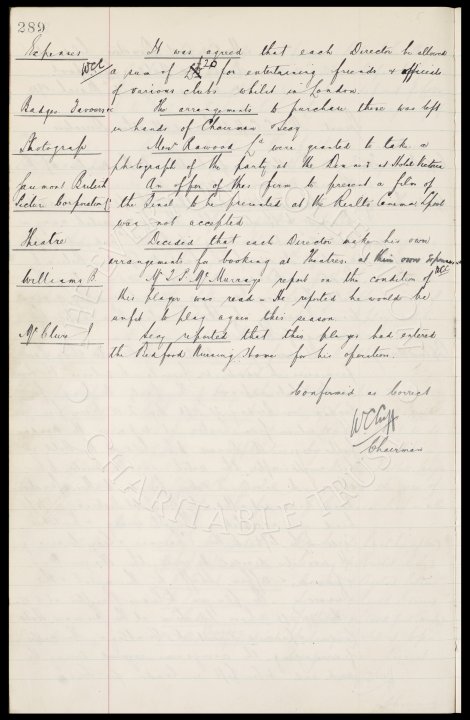 289
Expenses It was agreed that each Director be allowed
WCC a sum of £20 for entertaining friends & officials
of various clubs whilst in London.
Badges Favours &c The arrangements to purchase these was left
in hands of Chairman & Secy
Photograph Messrs were granted to take a
photograph of the party at the Dinner at Hotel Victoria
Gaumont British An offer of this firm to present a film of
Picture Corporation Ltd the Final to be presented at the Rialto Cinema
was not accepted
Theatre Decided that each Director make his own
arrangements for booking at Theatres. at their own Expense
WCC
Williams B. Mr McMurray's report on the condition of
this player was read - He reported he would be
unfit to play again this season
McClure J Secy reported that this player had entered
the Nursing Home for his operation.
Confirmed as Correct
WCCuff
Chairman
CHARITABLE TRUST